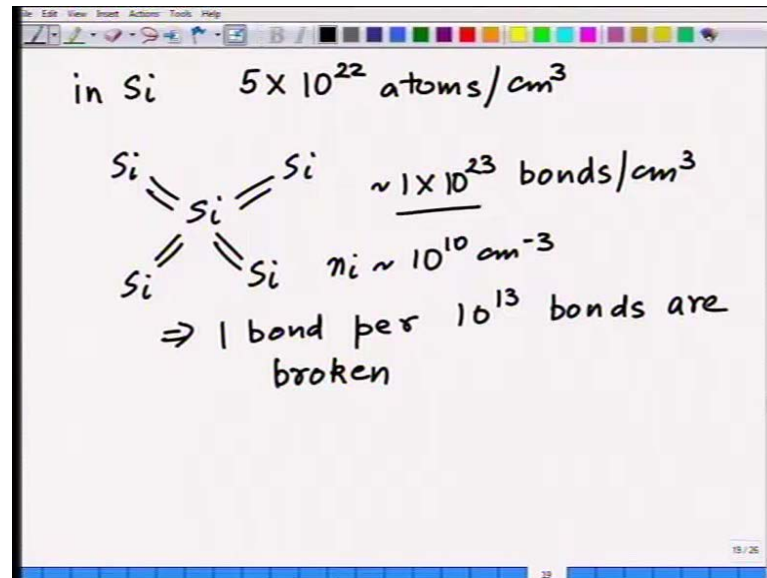 File Edit View Insert Actions Tools Help
in Si 5 X 10²² atoms/cm³
Si Si ~ 1 X 10²³ bonds/cm³
Si
Si Si ni ~ 10¹⁰ cm⁻³
⇒ 1 bond per 10¹³ bonds are
broken
19 / 26
19